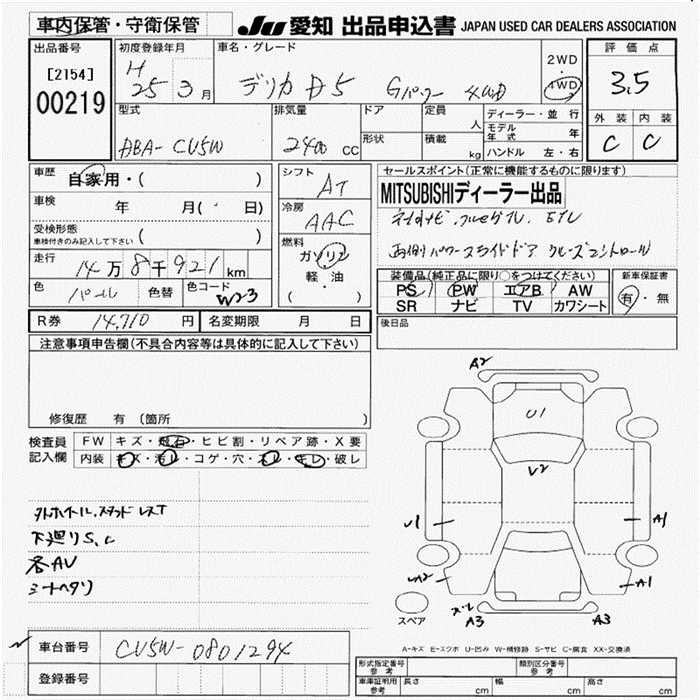 車内保管・守衛保管
JU 愛知 出品申込書 JAPAN USED CAR DEALERS ASSOCIATION
出品番号
[2154]
00219
初度登録年月
H
25 3 月
車名・グレード
デリカ D5 Gパワー 4WD
2WD
4WD
評価点
3.5
外装 内装
C C
型式
DBA- CV5W
排気量
2400 cc
ドア
形状
定員
人
積載
kg
ディーラー・並行
モデル年式 年
ハンドル 左・右
車歴
自家用・( )
車検
年 月( 日)
受検形態
車検付きのみ記入して下さい ( )
走行
14万8千921 km
色
パール
色替
色コード
W23
シフト
AT
冷房
AAC
燃料
ガソリン
軽・油
( ・ )
セールスポイント(正常に機能するものに限ります)
MITSUBISHIディーラー出品
両側パワースライドドア クルーズコントロール
装備品(純正品に限り○をつけてください)
PS PW エアB AW
SR ナビ TV カワシート
新車保証書
有・無
R券 14,710 円 名変期限 月 日
後日品
注意事項申告欄(不具合内容等は具体的に記入して下さい)
修復歴 有 (箇所 )
検査員記入欄
FW キズ・飛石・ヒビ割・リペア跡・X要
内装 キズ・汚レ・コゲ・穴・スレ・キレ・破レ
下廻りS.C
各AU
シートヘタリ
A2
U1
U2
U1
A1
A2
A1
スペア
スレ
A3
A3
A-キズ E-エクボ U-凹み W-補修跡 S-サビ C-腐食 XX-交換済
車台番号 CV5W-0801294
登録番号
形式指定番号
参考
類別区分番号
参考
車庫証明用
参考
長さ cm 幅 cm 高さ cm